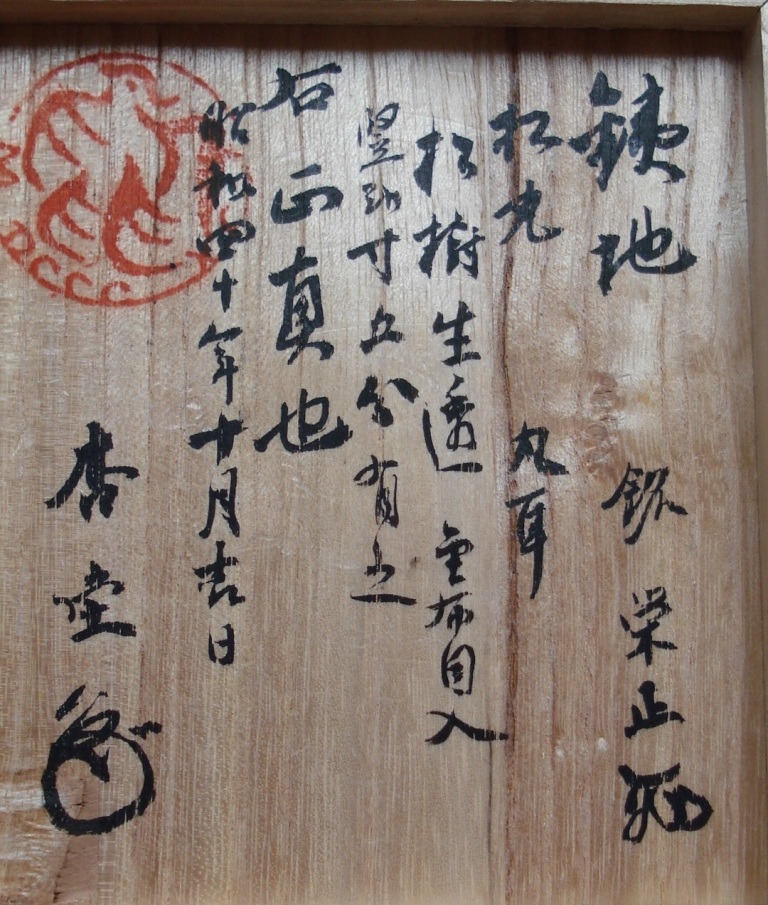 銕地 銘 栄正
松光 丸耳
松樹生透 金布目入
竪弐寸五分有之
右正真也
昭和四十年十月吉日
杏堂